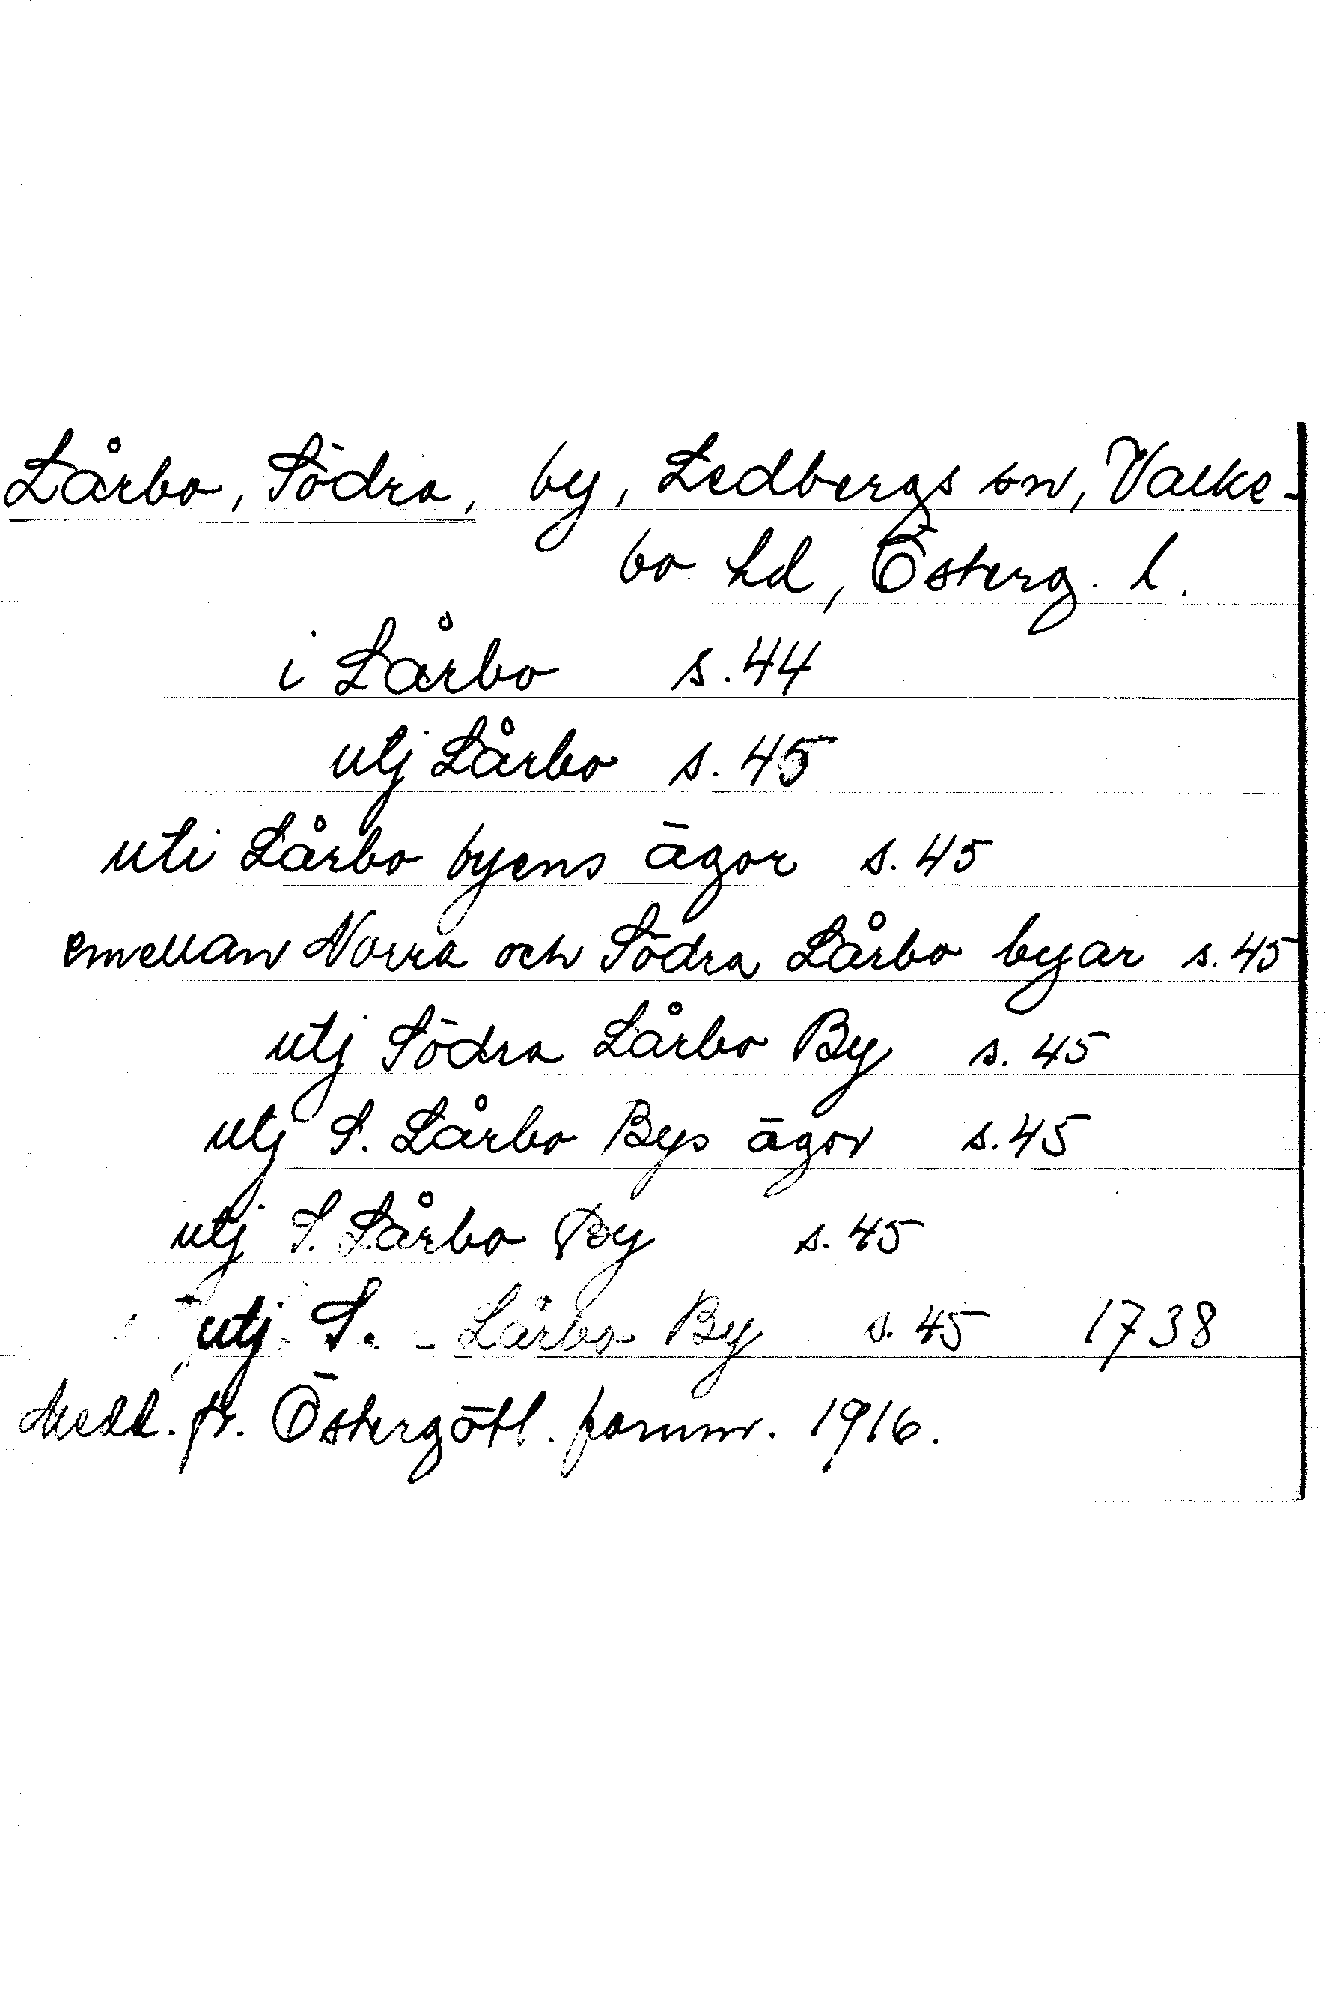 Lårbo, Södra, by, Ledbergs sn, Valke-
bo hd, Österg. l.
i Lårbo s. 44
utj Lårbo s. 45
uti Lårbo byens ägor s. 45
emellan Norra och Södra Lårbo byar s. 45
utj Södra Lårbo By s. 45
utj S. Lårbo Bys ägor s. 45
utj S. Lårbo By s. 45
utj S. - Lårbo By s. 45 1738
Medd. fr. Östergötl. fornm. 1916.